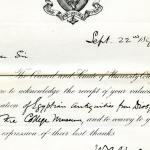 Sept. 22nd 189
Sir
The Council and Senate of University
to acknowledge the receipt of your valua
ation of Egyptian Antiquities from Dios
the College Museum, and to convey to y
expression of their best thanks